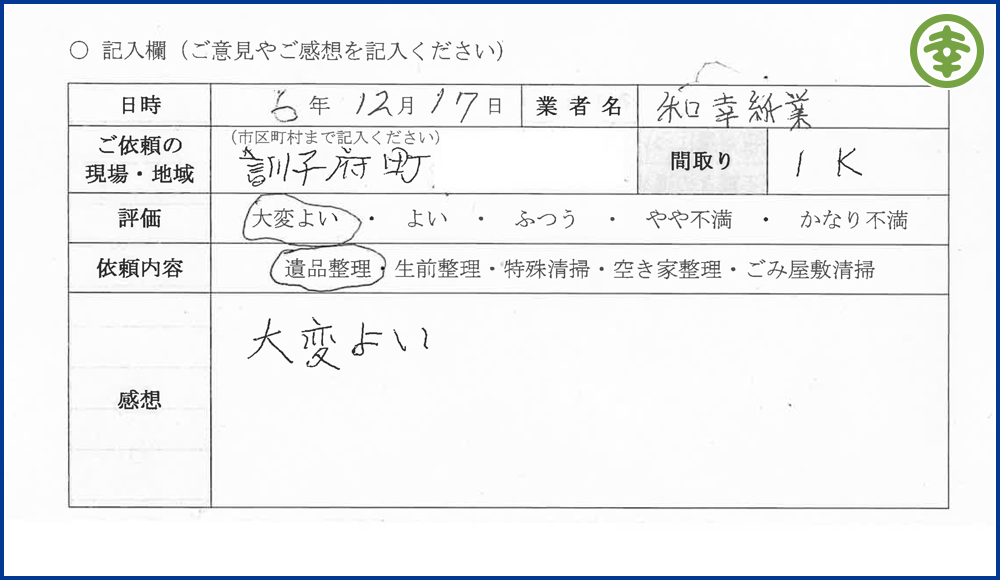 〇 記入欄（ご意見やご感想を記入ください）
日時 6年 12月 17日 業者名 和幸紙業
ご依頼の現場・地域 （市区町村まで記入ください） 間取り 1K
訓子府町
評価 大変よい ・ よい ・ ふつう ・ やや不満 ・ かなり不満
依頼内容 遺品整理・生前整理・特殊清掃・空き家整理・ごみ屋敷清掃
感想 大変よい
幸